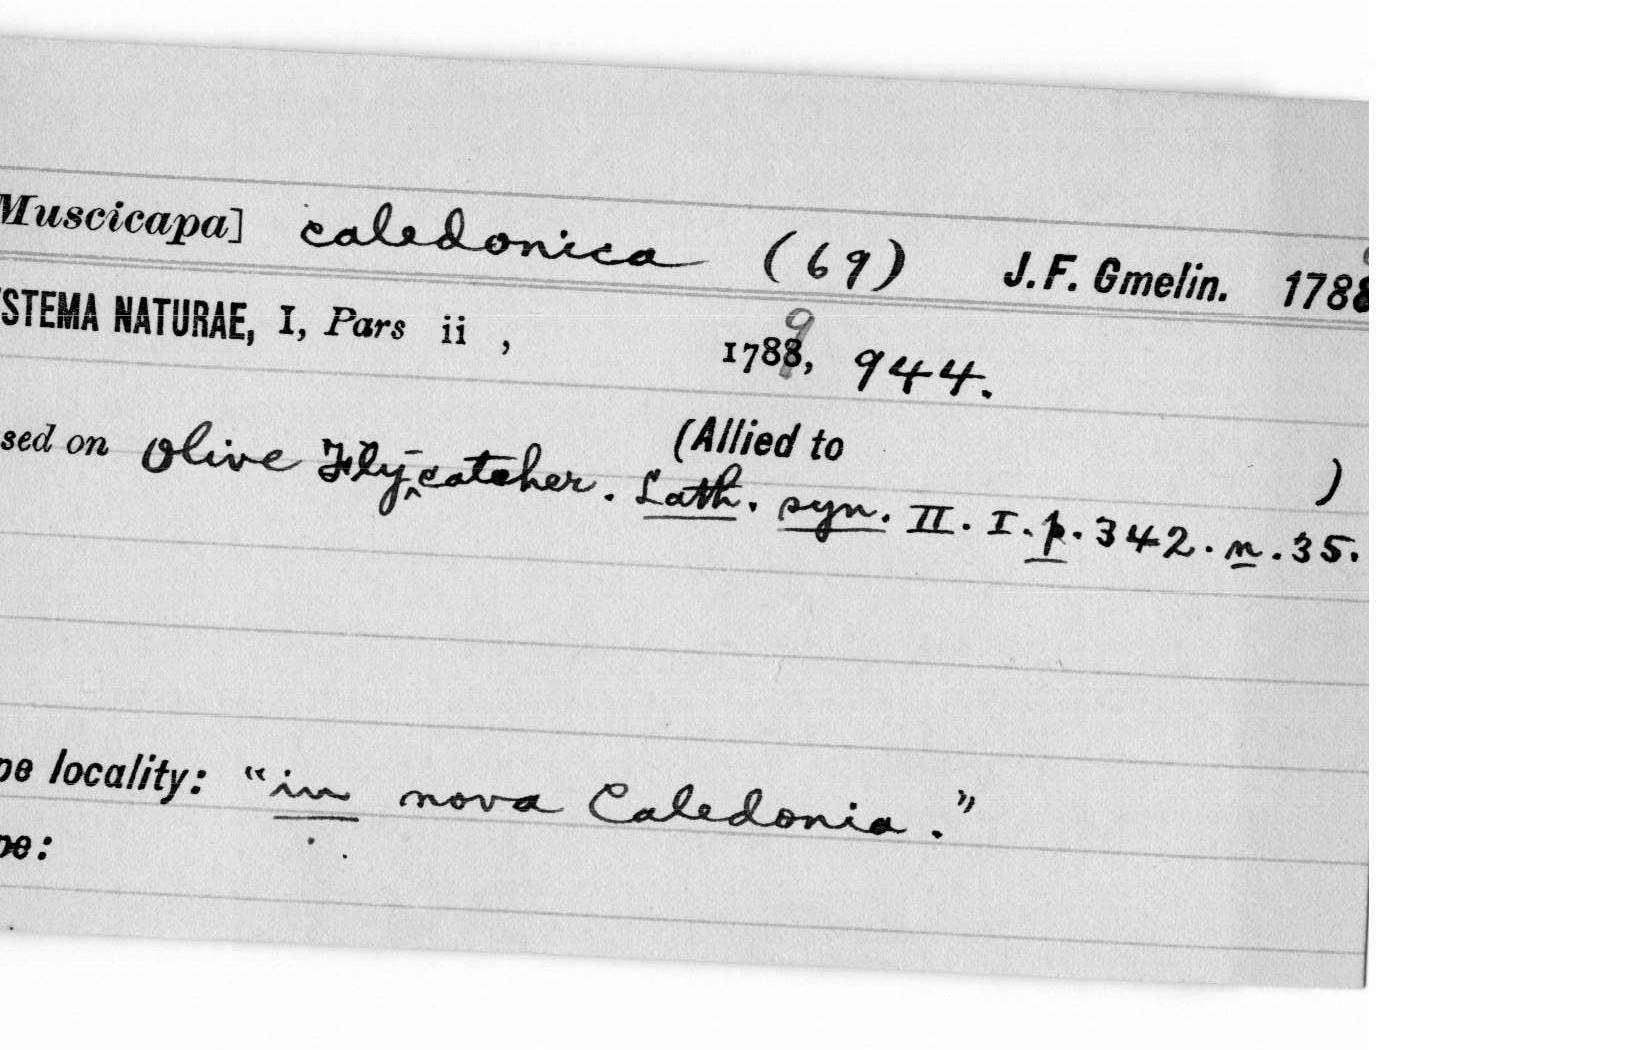 Muscicapa] caledonica (69) J. F. Gmelin. 1788
STEMA NATURAE, I, Pars ii , 1788, 9 944.
(Allied to )
sed on Olive Fly-catcher. Lath. syn. II. I. p. 342. n. 35.
pe locality: "in nova Caledonia."
pe: